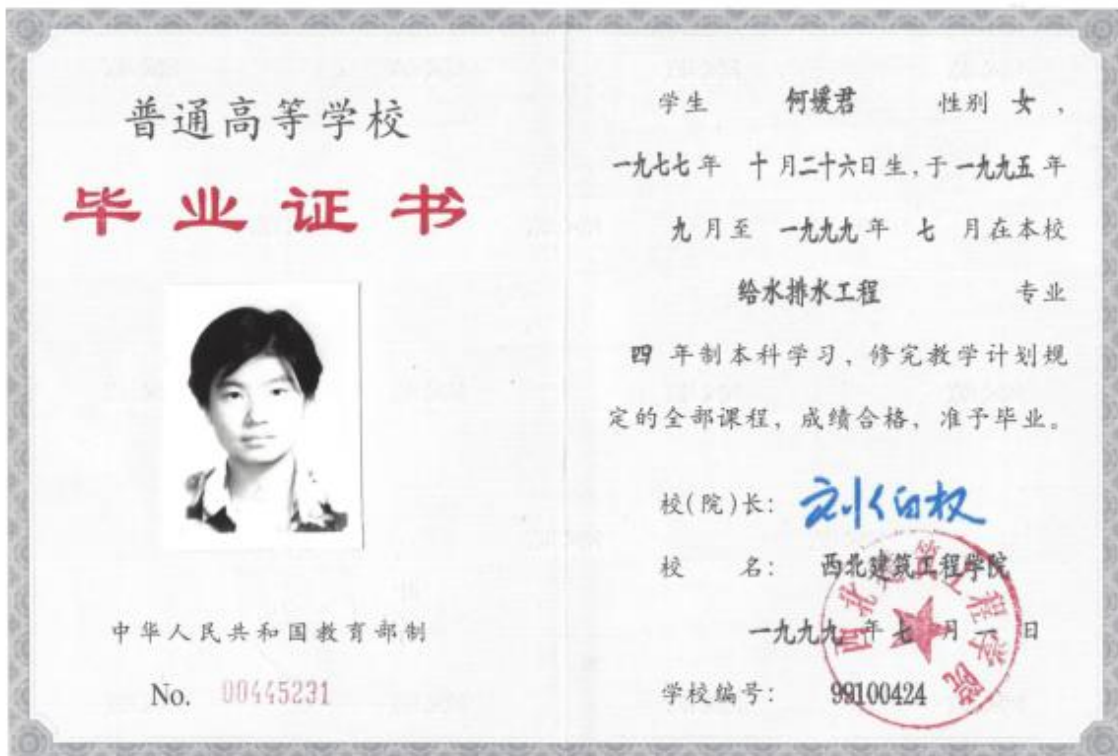 普通高等学校
毕业证书
中华人民共和国教育部制
No. 00445231
学生 何媛君 性别 女，
一九七七年 十月二十六日生，于一九九五年
九月至 一九九九年 七 月在本校
给水排水工程 专业
四 年制本科学习，修完教学计划规
定的全部课程，成绩合格，准予毕业。
校(院)长： 刘伯权
校 名： 西北建筑工程学院
一九九九 年 七 月 一 日
学校编号： 99100424
西北建筑工程学院